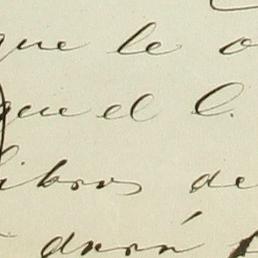 que le o
quel C.
libros de
dará